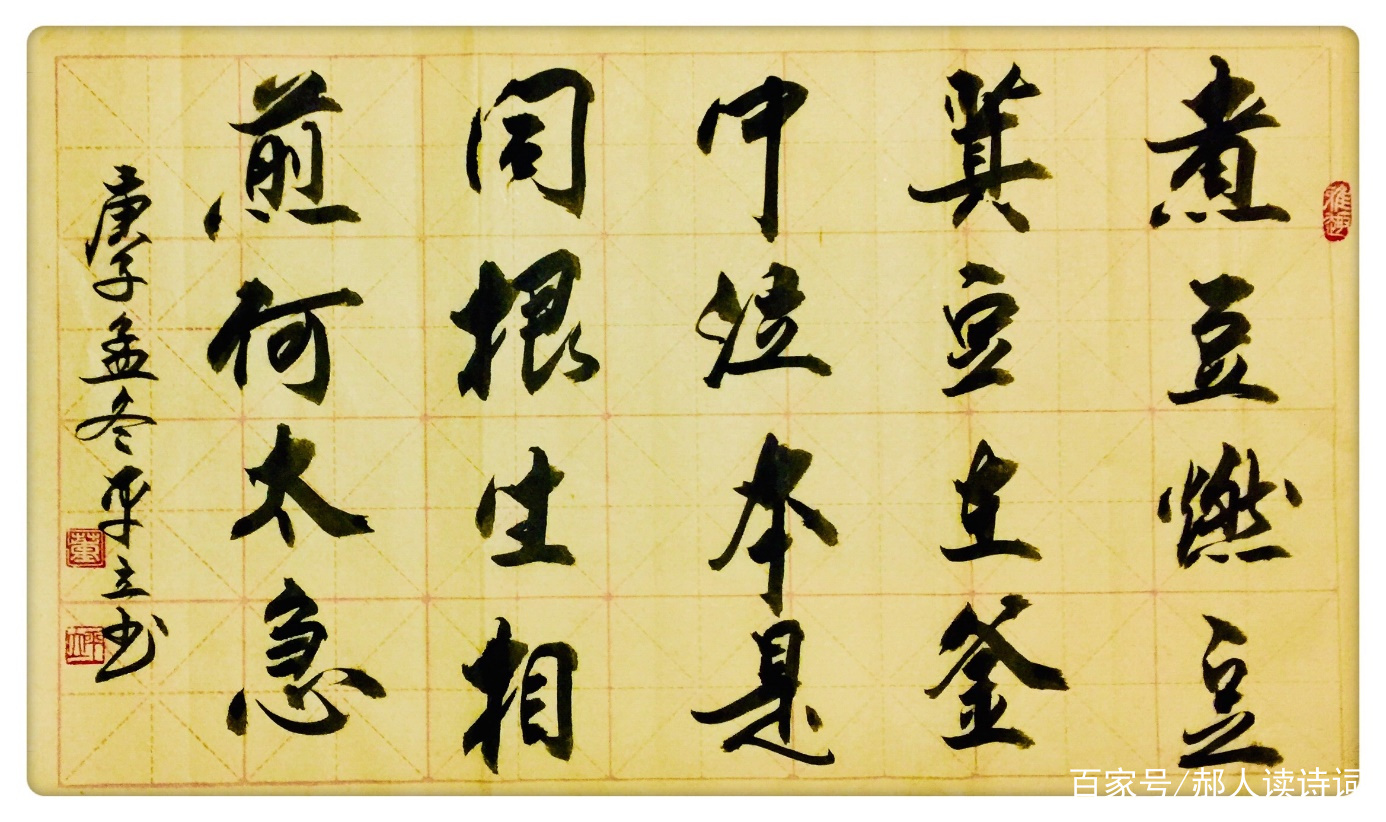 煮豆燃豆
萁豆在釜
中泣本是
同根生相
煎何太急
庚子孟冬平立书
百家号/郝人读诗词